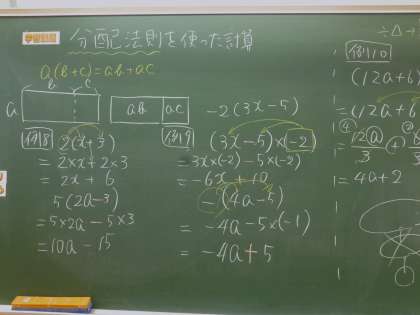 学習課題 分配法則を使った計算
a(b+c)=ab+ac
b c
a
ab ac
例18
2(x+3)
=2×x+2×3
=2x+6
5(2a-3)
=5×2a-5×3
=10a-15
-2(3x-5)
例19
(3x-5)×(-2)
=3x×(-2)-5×(-2)
=-6x+10
-(4a-5)
=-4a-5×(-1)
=-4a+5
例110
(12a+6
=(12a+6
=12a/3+6
=4a+2